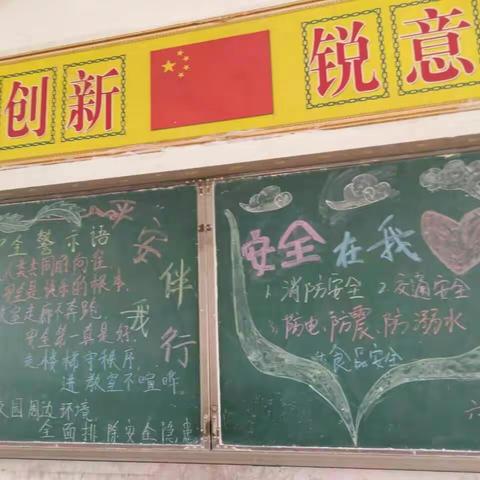 创新 锐意
平安伴我行
全警示语
人类共同的向往
安全是快乐的根本
室走廊不奔跑
安全第一真是好
走楼梯守秩序
进教室不喧哗
校园周边环境
全面排除安全隐患
安全在我
1.消防安全 2.交通安全
3.防电、防震、防溺水
食品安全
六